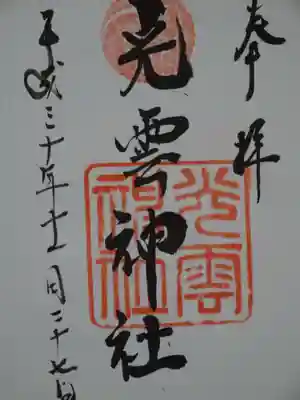 奉拝
光雲神社
光雲神社
平成三十年十二月二十七日